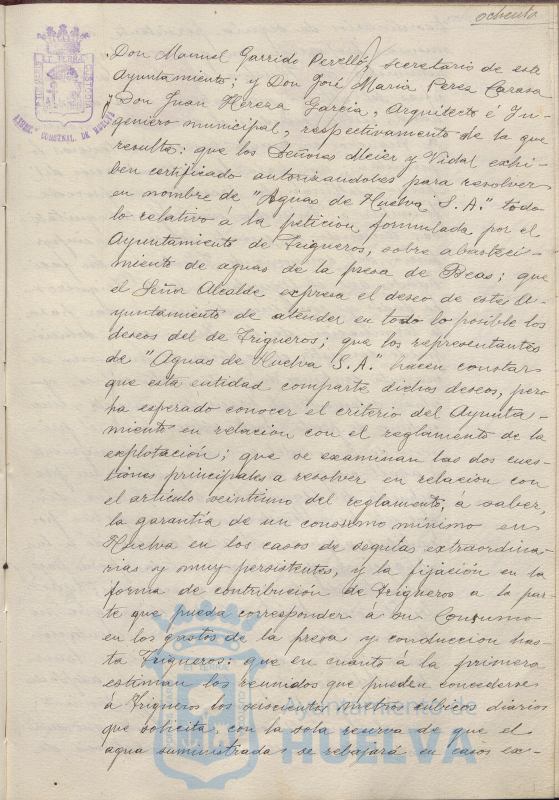 ochenta
Don Manuel Garrido Perelló, secretario de este
Ayuntamiento; y Don José María Perez Carasa
y Don Juan Herera Garcia, Arquitecto é In-
geniero municipal, respectivamente de la que
resulta: que los Señores Meier y Vidal exhi-
ben certificado autorizandoles para resolver
en nombre de "Aguas de Huelva S.A." todo
lo relativo á la petición formulada por el
Ayuntamiento de Trigueros, sobre abasteci-
miento de aguas de la presa de Beas; que
el Señor Alcalde expresa el deseo de este A-
yuntamiento de atender en todo lo posible los
deseos del de Trigueros; que los representantes
de "Aguas de Huelva S.A." hacen constar
que esta entidad comparte dichos deseos, pero
ha esperado conocer el criterio del Ayunta-
miento en relacion con el reglamento de la
explotación; que se examinan las dos cues-
tiones principales a resolver en relación con
el articulo veintiuno del reglamento, á saber,
la garantía de un consumo mínimo en
Huelva en los casos de sequias extraordina-
rias y muy persistentes, y la fijación en la
forma de contribución de Trigueros a la par-
te que pueda corresponder á su Consumo
en los gastos de la presa y conduccion has-
ta Trigueros: que en cuanto á la primera
estiman los reunidos que pueden concederse
á Trigueros los seiscientos metros cúbicos diarios
que solicita, con la sola reserva de que el
agua suministrada se rebajará en casos ex-
ARCHIVO MUNICIPAL DE HUELVA
PORTUS MARIS ET TERRAE CUSTODIA
Ayuntamiento de
HUELVA